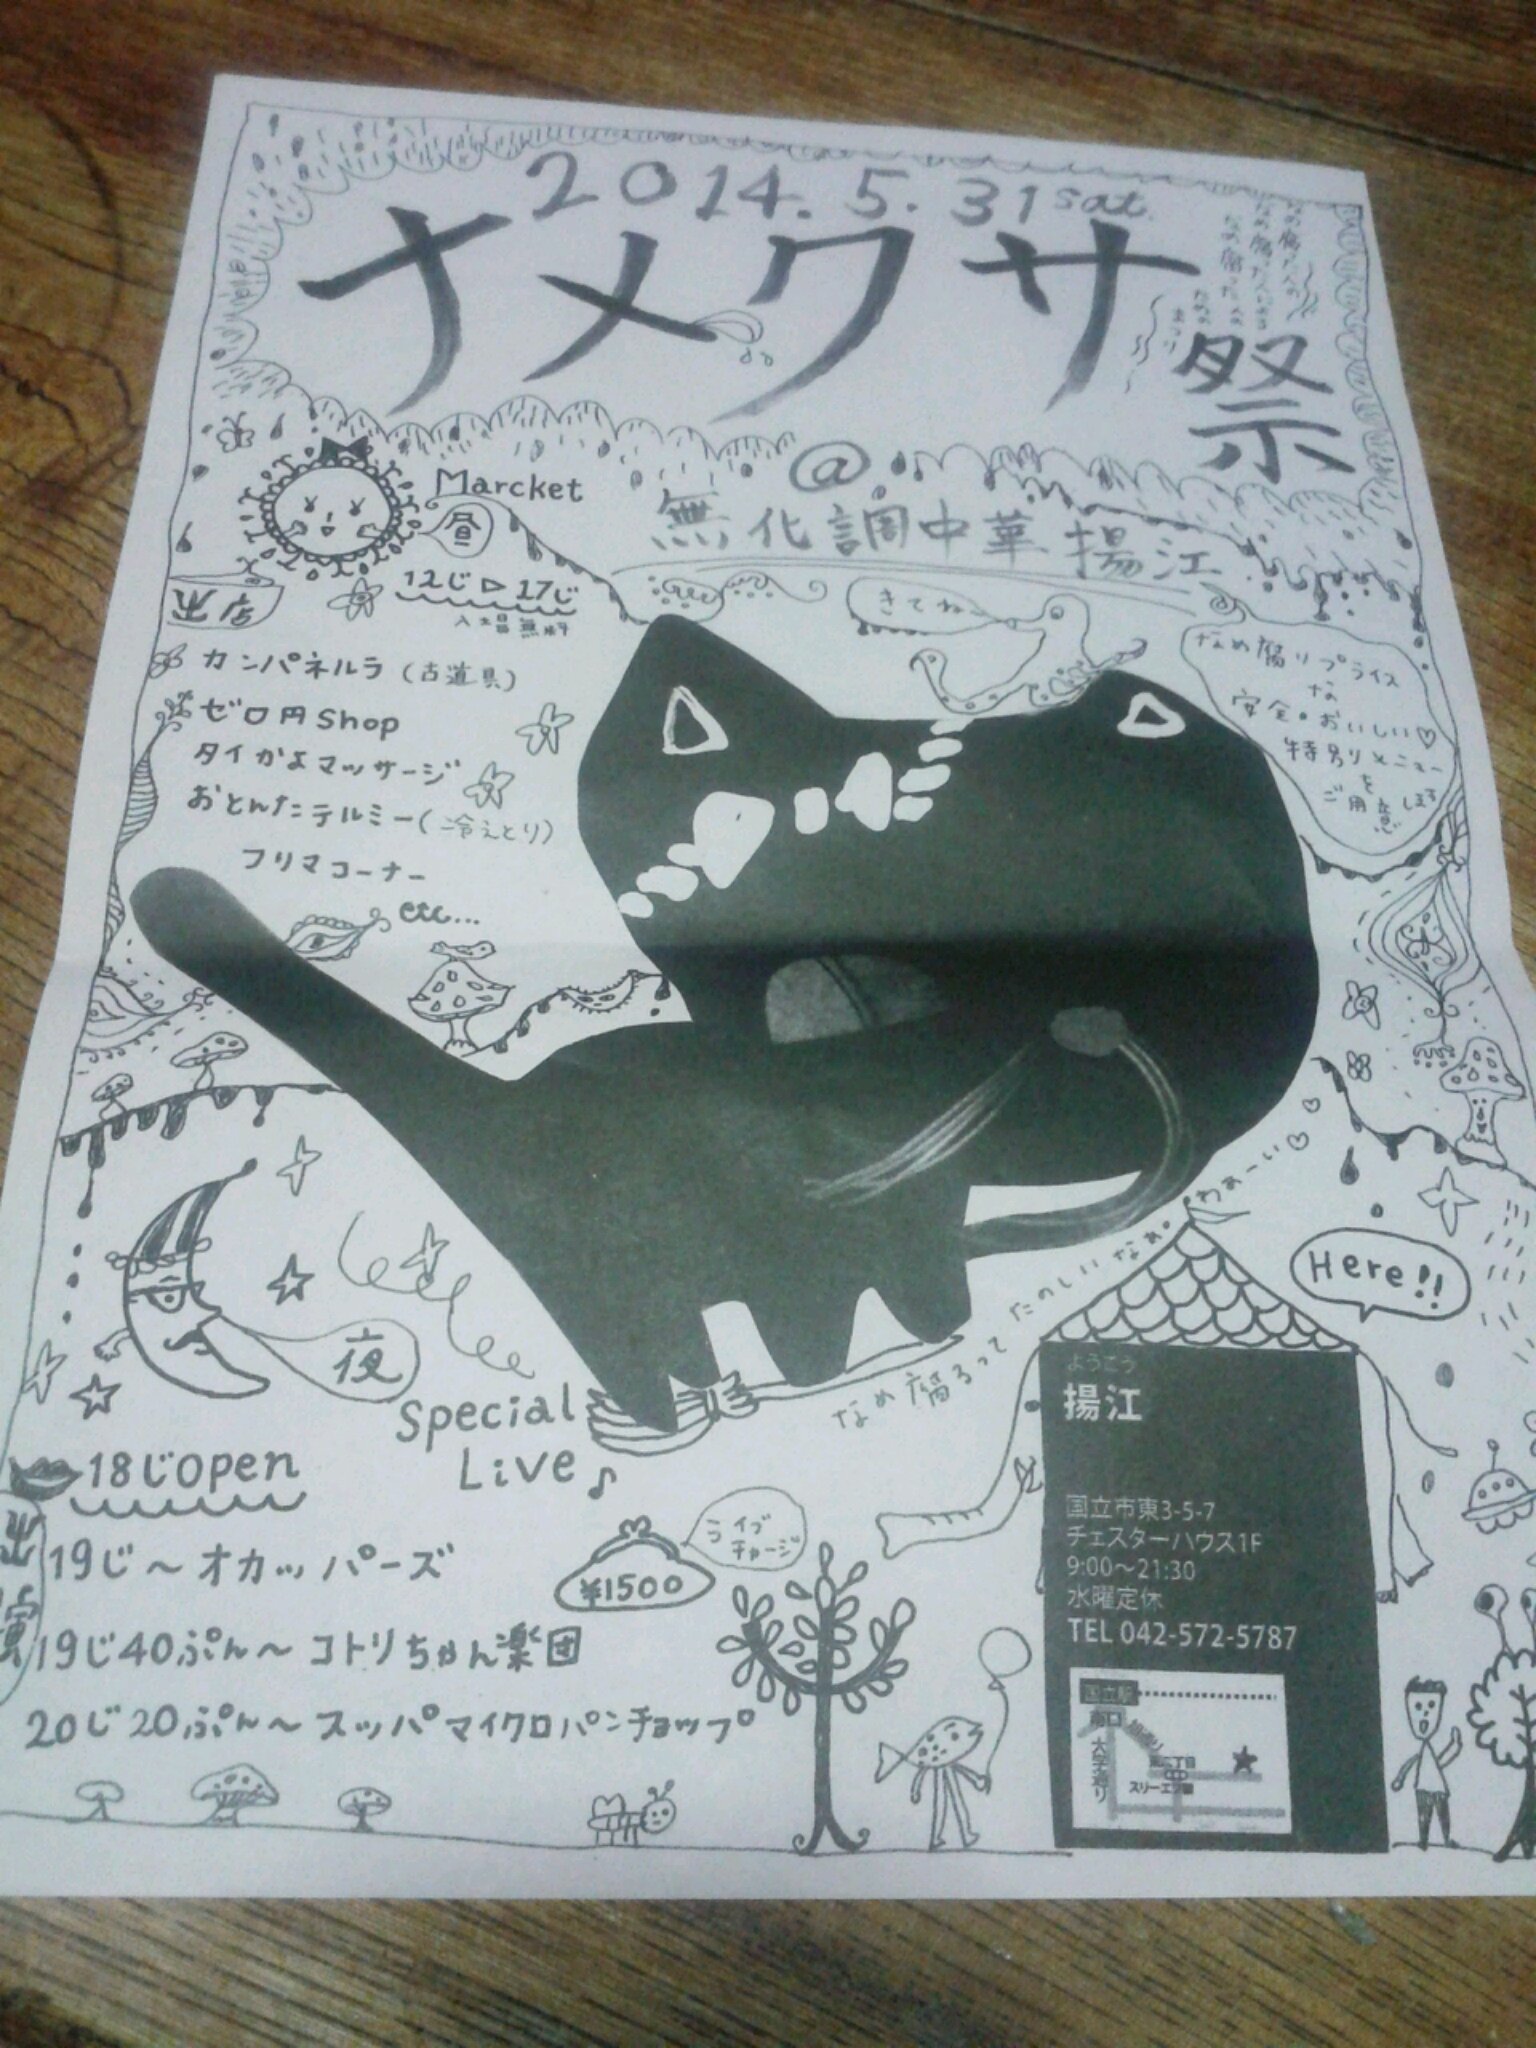 2014.5.31 sat.
ナメクサ祭
まつり
@
無化調中華 揚江
Marcket
昼
12じ▷17じ
入場無料
出店
カンパネルラ (古道具)
ゼロ円 Shop
タイかよマッサージ
おとんたテルミー(冷えとり)
フリマコーナー
etc...
きてねー
なめ腐りプライス
な
安全・おいしい♡
特別メニュー
を
ご用意しまう
夜
Special
Live♪
なめ腐るって たのしいなぁ。わぁーい♡♡
Here!!
18じopen
出演
19じ〜オカッパーズ
19じ40ぷん〜コトリちゃん楽団
20じ20ぷん〜スッパマイクロパンチョップ
ライブチャージ
¥1500
ようこう
揚江
国立市東3-5-7
チェスターハウス1F
9:00〜21:30
水曜定休
TEL 042-572-5787
国立駅
南口
旭通り
大学通り
東二丁目